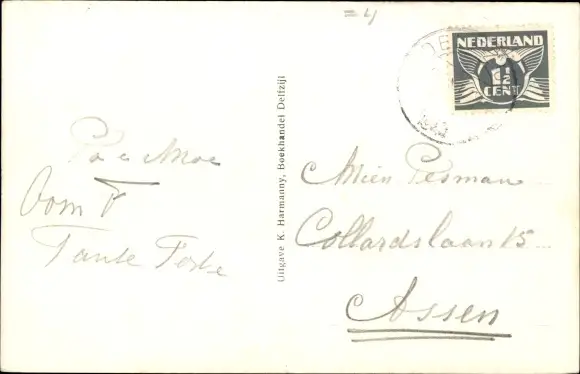 =4
NEDERLAND
1½
CENT
Pa e Moe
Oom F
Tante
Uitgave K. Harmanny, Boekhandel Delfzijl
Mien Pesman
Collardslaan 15
Assen